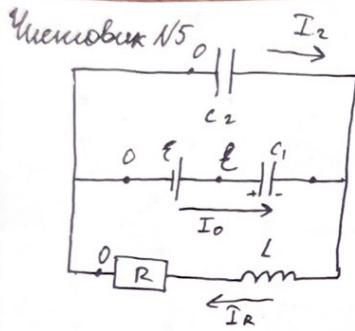 Чистовик N5
I₂
0
C₂
0 ℰ ℰ C₁
+ -
I₀
0 R L
I_R